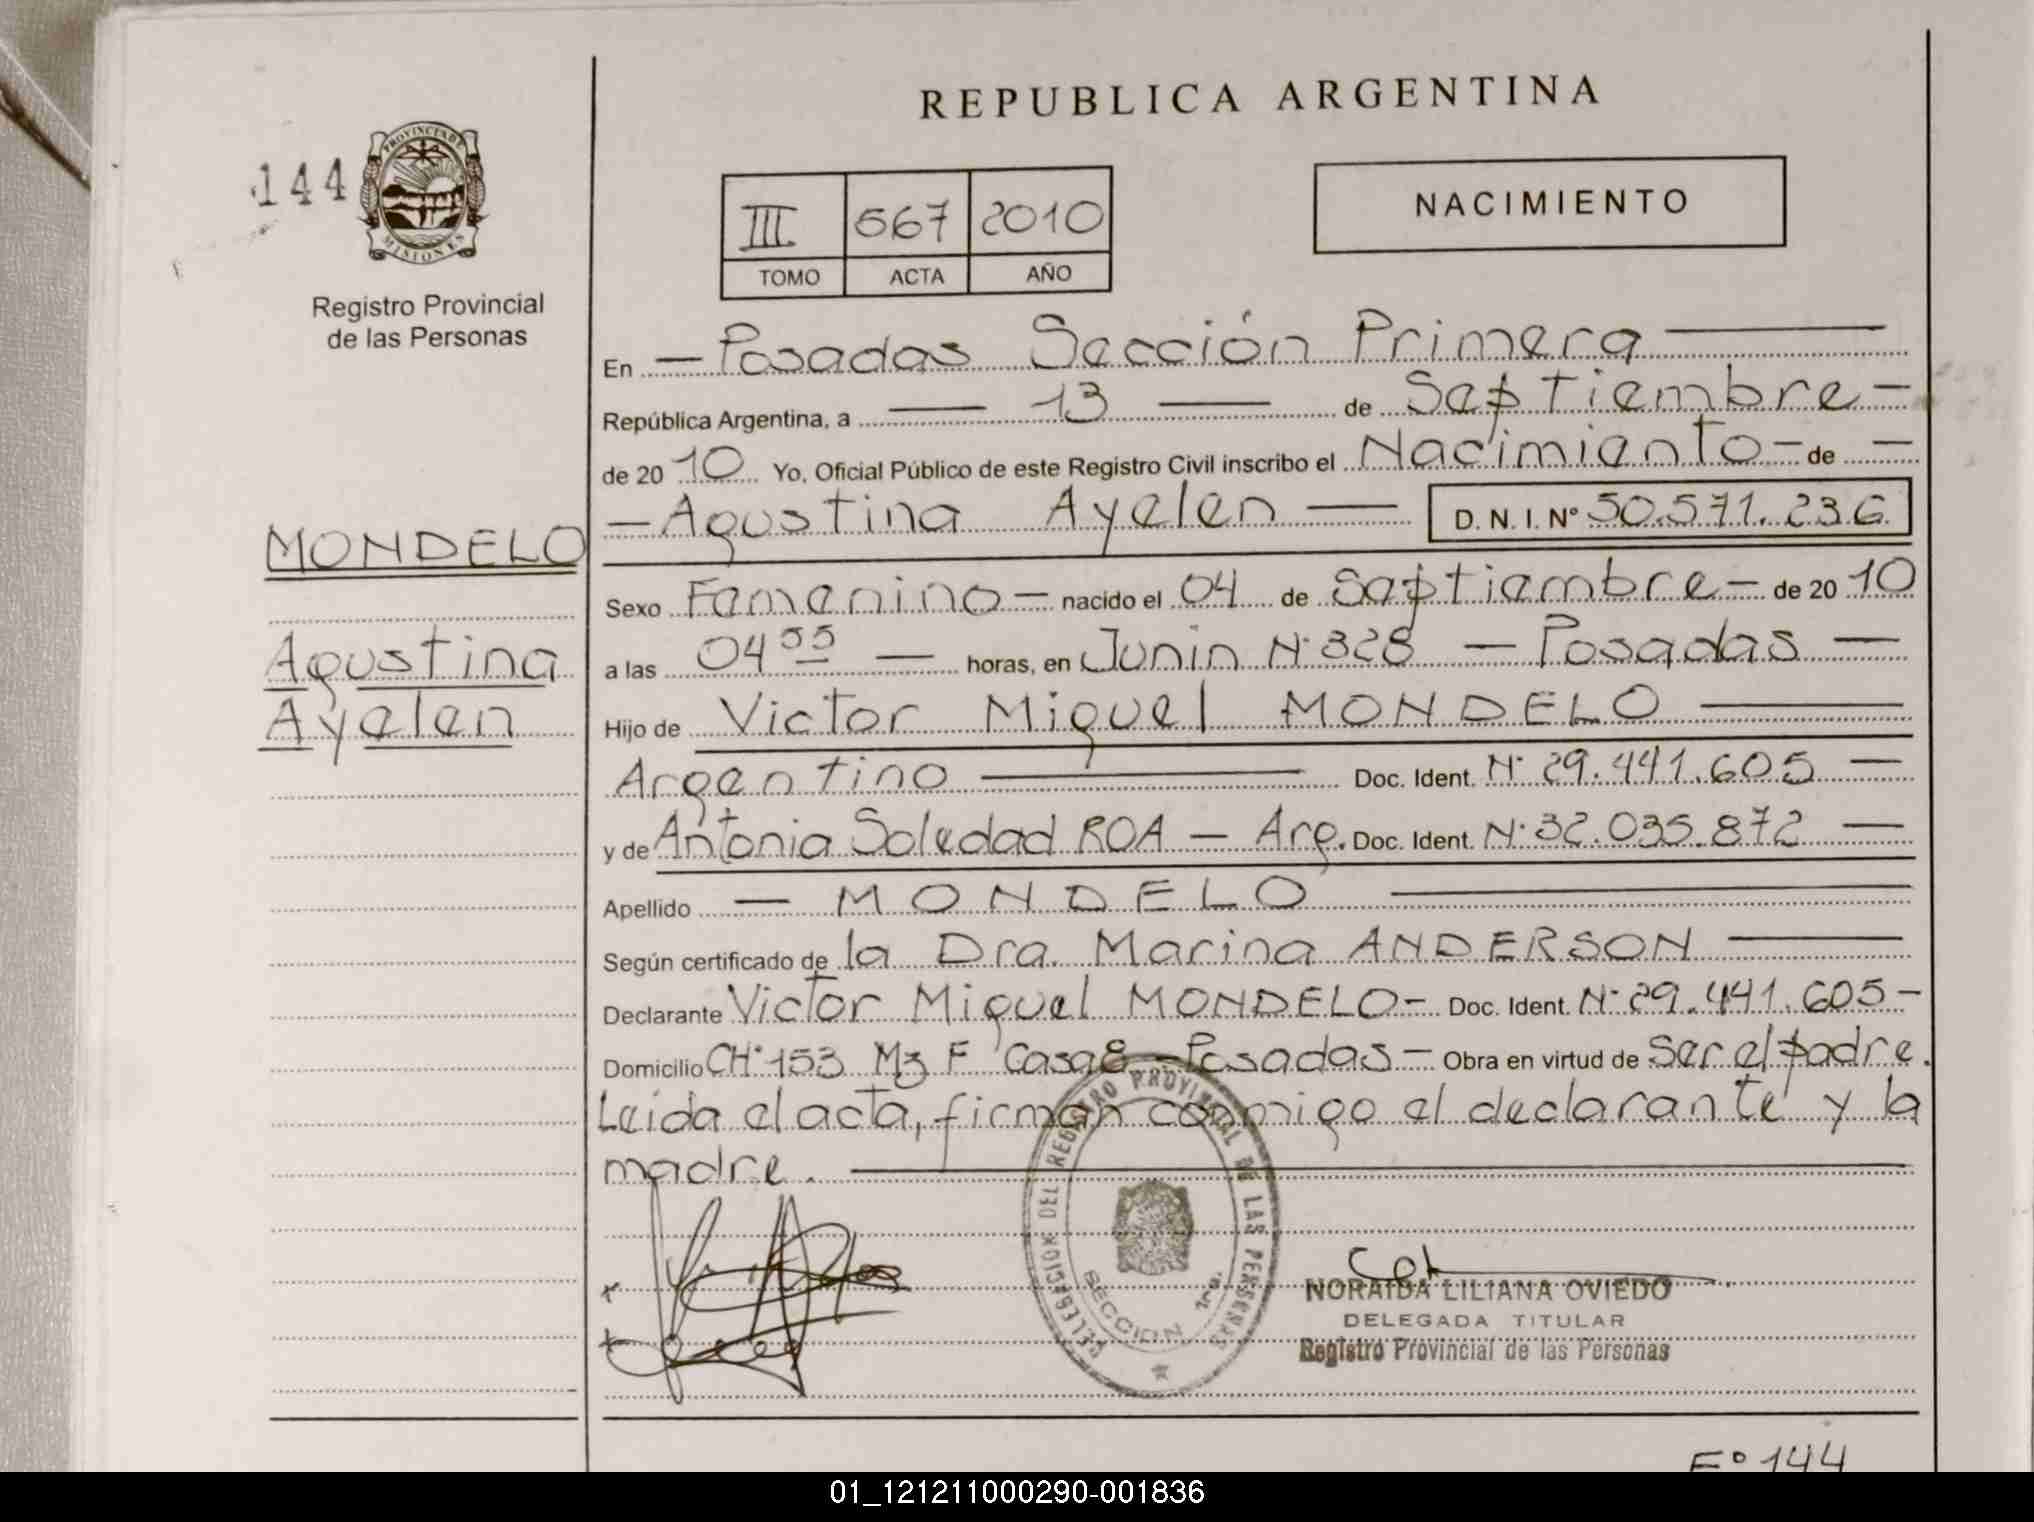 REPUBLICA ARGENTINA
144
PROVINCIA DE
MISIONES
Registro Provincial
de las Personas
III 567 2010
TOMO ACTA AÑO
NACIMIENTO
En — Posadas Sección Primera —
República Argentina, a — 13 — de Septiembre —
de 20 10 Yo, Oficial Público de este Registro Civil inscribo el Nacimiento — de —
— Agustina Ayelen — D. N. I. Nº 50.571.236
MONDELO
Agustina
Ayelen
Sexo Femenino — nacido el 04 de Septiembre — de 20 10
a las 04 55 — horas, en Junin Nº 328 — Posadas —
Hijo de Victor Miguel MONDELO —
Argentino — Doc. Ident. Nº 29.441.605 —
y de Antonia Soledad ROA — Arg. Doc. Ident. Nº 32.035.872 —
Apellido — MONDELO —
Según certificado de la Dra. Marina ANDERSON —
Declarante Victor Miguel MONDELO — Doc. Ident. Nº 29.441.605 —
Domicilio CHº 153 Mz F Casa 8 — Posadas — Obra en virtud de ser el padre.
Leida el acta, firman conmigo el declarante y la
madre. —
DELEGACION DEL REGISTRO PROVINCIAL DE LAS PERSONAS
SECCION 1ra.
NORAIDA LILIANA OVIEDO
DELEGADA TITULAR
Registro Provincial de las Personas
Fº 144
01_121211000290-001836